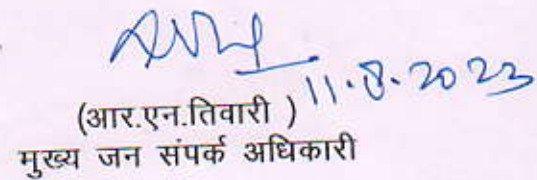 11.8.2023
(आर.एन.तिवारी )
मुख्य जन संपर्क अधिकारी